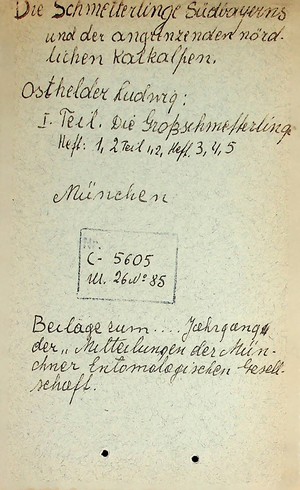 Die Schmetterlinge Südbayerns
und der angrenzenden nörd-
lichen Kalkalpen.
Osthelder Ludwig:
I. Teil. Die Großschmetterlinge
Heft: 1, 2 Teil 1,2, Heft 3, 4, 5
München
Nr.
C- 5605
III. 26 No 85
Beilage zum .... Jahrgang
der „Mitteilungen der Mün-
chner Entomologischen Gesell-
schaft.